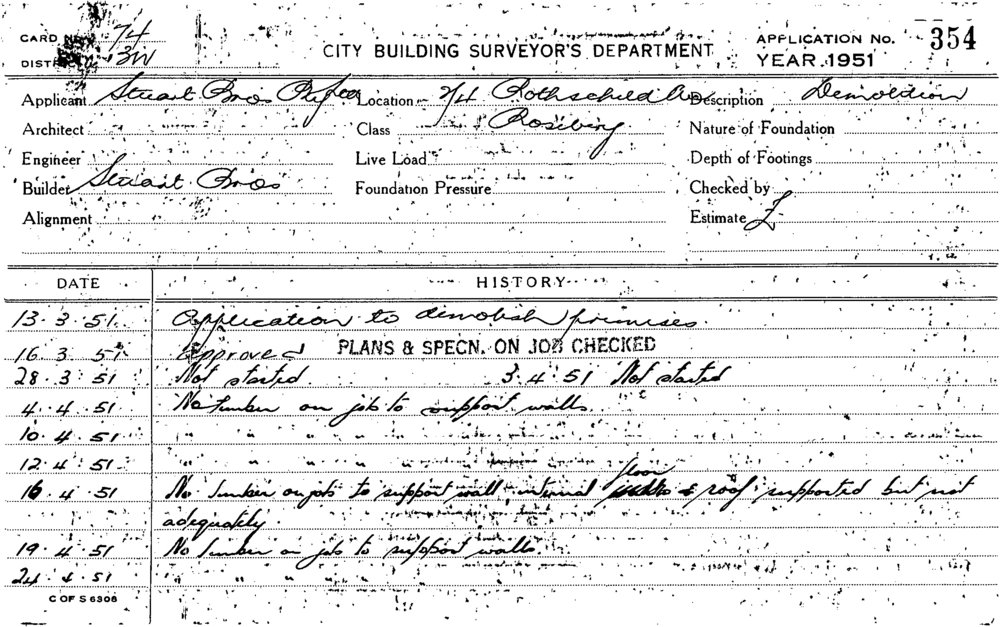 CARD No. 74
DISTRICT 3W
CITY BUILDING SURVEYOR'S DEPARTMENT
APPLICATION No. 354
YEAR 1951
Applicant Stuart Bros Location 2/4 Rothschild Ave Description Demolition
Architect Class Rosebery Nature of Foundation
Engineer Live Load Depth of Footings
Builder Stuart Bros Foundation Pressure Checked by
Alignment Estimate £
DATE HISTORY
13.3.51 Application to demolish premises.
16.3.51 Approved PLANS & SPECN. ON JOB CHECKED
28.3.51 Not started 3.4.51 Not started
4.4.51 No timber on job to support walls
10.4.51 " " " " " " "
12.4.51 " " " " " " "
16.4.51 No timber on job to support wall, internal floor & roof supported but not
adequately.
19.4.51 No timber on job to support walls.
24.4.51 " " " "
C OF S 6306